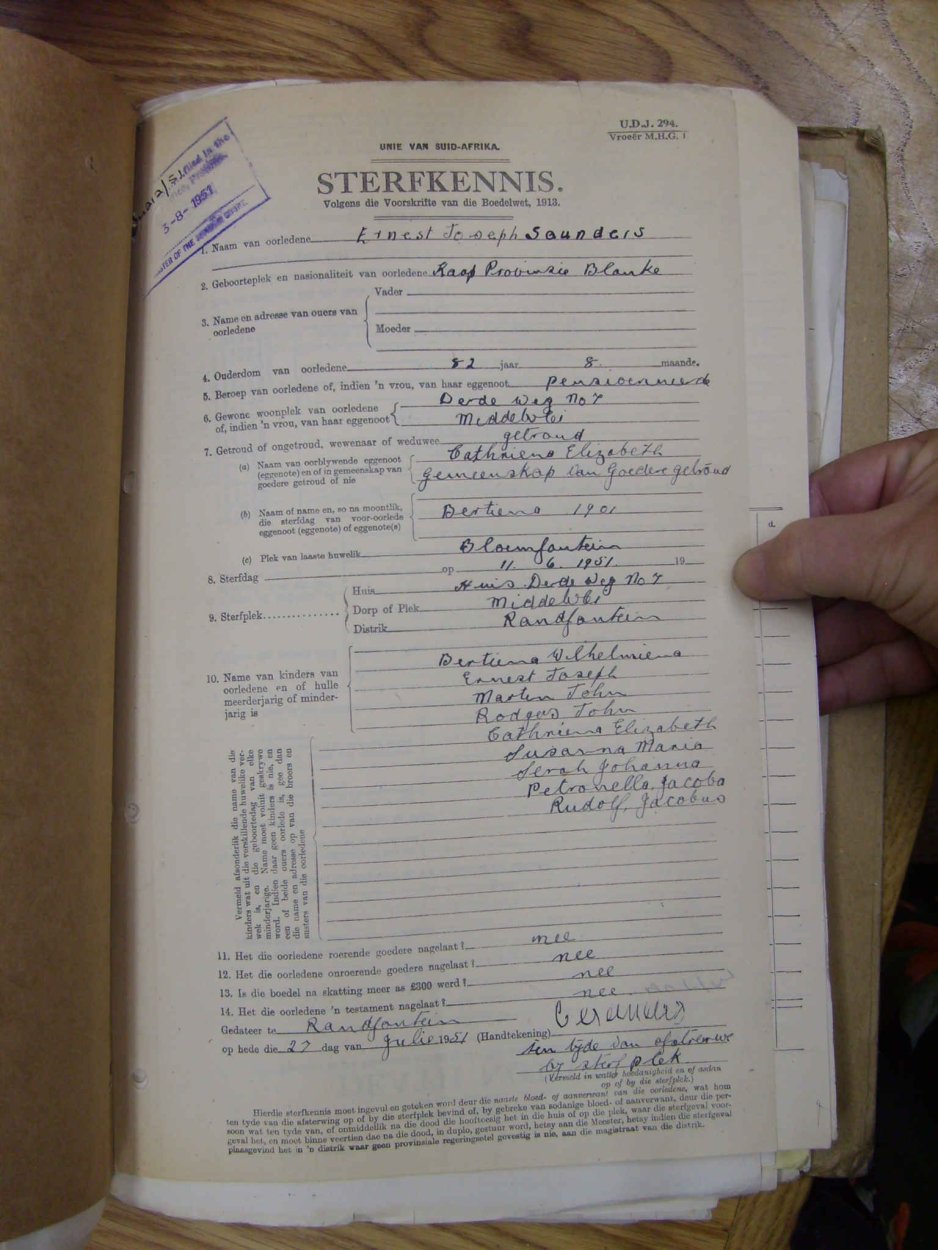 U.D.J. 294.
Vroeër M.H.G. 1
UNIE VAN SUID-AFRIKA.
STERFKENNIS.
Volgens die Voorskrifte van die Boedelwet, 1913.
filed in the
3-8-1951
1. Naam van oorledene Ernest Joseph Saunders
2. Geboorteplek en nasionaliteit van oorledene Kaap Provinsie Blanke
3. Name en adresse van ouers van oorledene
Vader
Moeder
4. Ouderdom van oorledene 82 jaar 8 maande.
5. Beroep van oorledene of, indien 'n vrou, van haar eggenoot pensioenneerde
6. Gewone woonplek van oorledene of, indien 'n vrou, van haar eggenoot
Derde Weg No 7
Middelvlei
7. Getroud of ongetroud, wewenaar of weduwee getroud
(a) Naam van oorblywende eggenoot (eggenote) en of in gemeenskap van goedere getroud of nie
Cathriena Elizabeth
Gemeenskap van Goedere getroud
(b) Naam of name en, so na moontlik, die sterfdag van voor-oorlede eggenoot (eggenote) of eggenote(s)
Bertiena 1901
(c) Plek van laaste huwelik Bloemfontein
8. Sterfdag op 11. 6. 1951. 19
9. Sterfplek
Huis Huis Derde Weg No 7
Dorp of Plek Middelvlei
Distrik Randfontein
10. Name van kinders van oorledene en of hulle meerderjarig of minderjarig is
Bertiena Wilhelmiena
Ernest Joseph
Martin John
Rodgers John
Cathriena Elizabeth
Susanna Maria
Serah Johanna
Petronella Jacoba
Rudolf Jacobus
Vermeld afsonderlik die name van die
kinders wat uit die verskillende huwelike ver-
wek is, en die geboortedag van elke
minderjarige. Name moet voluit geskrywe
word. Indien daar geen kinders is nie, en
een of beide ouers oorlede is, gee dan
die name en adresse op van die broers en
susters van die oorledene
11. Het die oorledene roerende goedere nagelaat? nee
12. Het die oorledene onroerende goedere nagelaat? nee
13. Is die boedel na skatting meer as £300 werd? nee
14. Het die oorledene 'n testament nagelaat? nee
Gedateer te Randfontein
op hede die 27 dag van Julie 1951 (Handtekening)
ten tyde van
by sterfplek
(Vermeld in watter hoedanigheid en of aedan
op of by die sterfplek.)
Hierdie sterfkennis moet ingevul en geteken word deur die naaste bloed- of aanverwant van die oorledene, wat hom
ten tyde van die afsterwing op of by die sterfplek bevind of, by gebreke van sodanige bloed- of aanverwant, deur die per-
soon wat ten tyde van, of onmiddellik na die dood die hooftoesig het in die huis of op die plek, waar die sterfgeval voor-
geval het, en moet binne veertien dae na die dood, in duplo, gestuur word, hetsy aan die Meester, hetsy indien die sterfgeval
plaasgevind het in 'n distrik waar geen provinsiale regeringsetel gevestig is nie, aan die magistraat van die distrik.